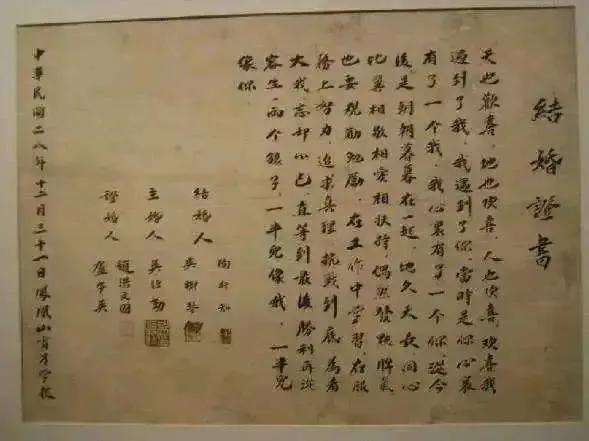 結婚證書
天也歡喜，地也歡喜，人也歡喜，歡喜我
遇到了你，你遇到了我，當時是你心裏
有了一个我，我心裏有了一个你，從今
後是朝朝暮暮在一起。地久天長，同心
比翼，相敬相愛相扶持，偶然發點脾氣，
也要規勸勉勵。在工作中學習，在服
務上努力，追求真理，抗戰到底。為着
大我忘却小己，直等到最後勝利。再從
容生一兩个孩子，一半兒像我，一半兒
像你。
結婚人 陶行知
吳樹琴
主婚人 吳
證婚人
中華民國二八年十二月三十一日鳳凰山育才學校